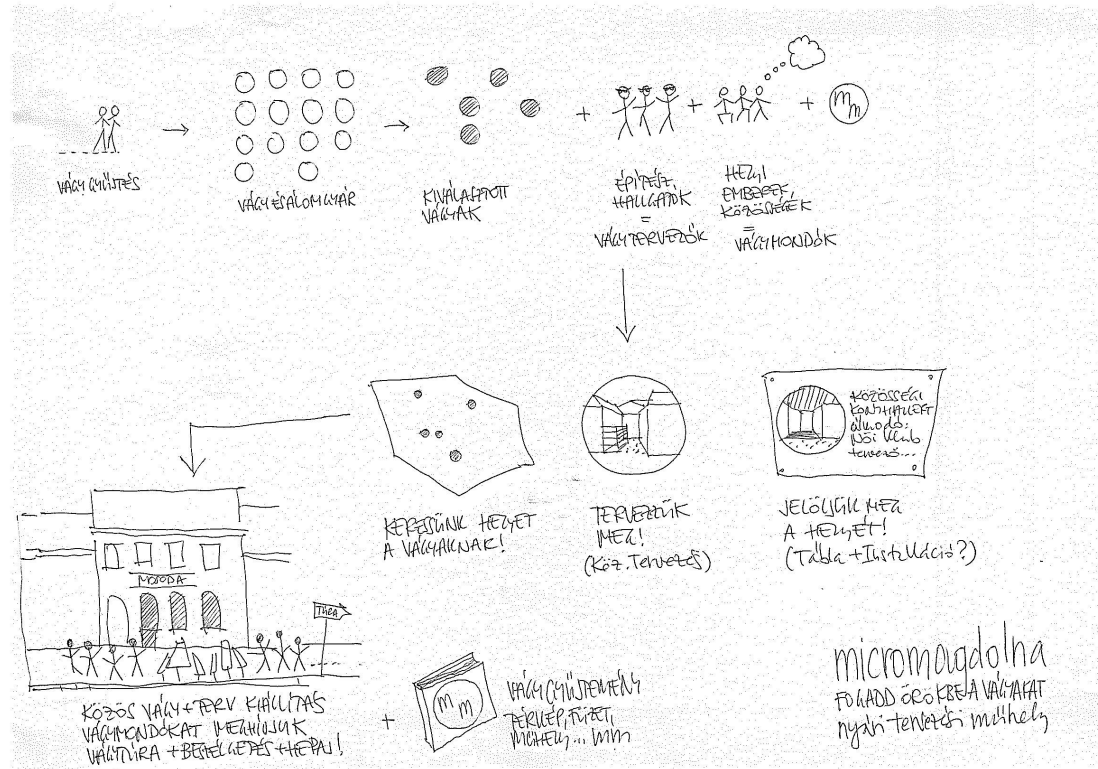 VÁGYGYŰJTÉS
VÁGY ÉS ÁLOMGYÁR
KIVÁLASZTOTT
VÁGYAK
+
ÉPÍTÉSZ
HALLGATÓK
=
VÁGYTERVEZŐK
+
HELYI
EMBEREK,
KÖZÖSSÉGEK
=
VÁGYMONDÓK
+
mm
KERESSÜNK HELYET
A VÁGYAKNAK!
TERVEZZÜK
MEG!
(Köz. Tervezés)
KÖZÖSSÉGI
álmodó:
Női klub
tervező...
JELÖLJÜK MEG
A HELYÉT!
(Tábla + Installáció?)
MOSODA
TÚRA
KÖZÖS VÁGY+TERV KIÁLLÍTÁS
VÁGYMONDÓKAT MEGHÍVJUK
VÁGYTÚRA + BESZÉLGETÉS + HEPAJ!
+
mm
VÁGYGYŰJTEMÉNY
TÉRKÉP, FÜZET,
MŰHELY... mm
micromagdolna
FOGADD ÖRÖKBE A VÁGYAKAT
nyári tervezési műhely